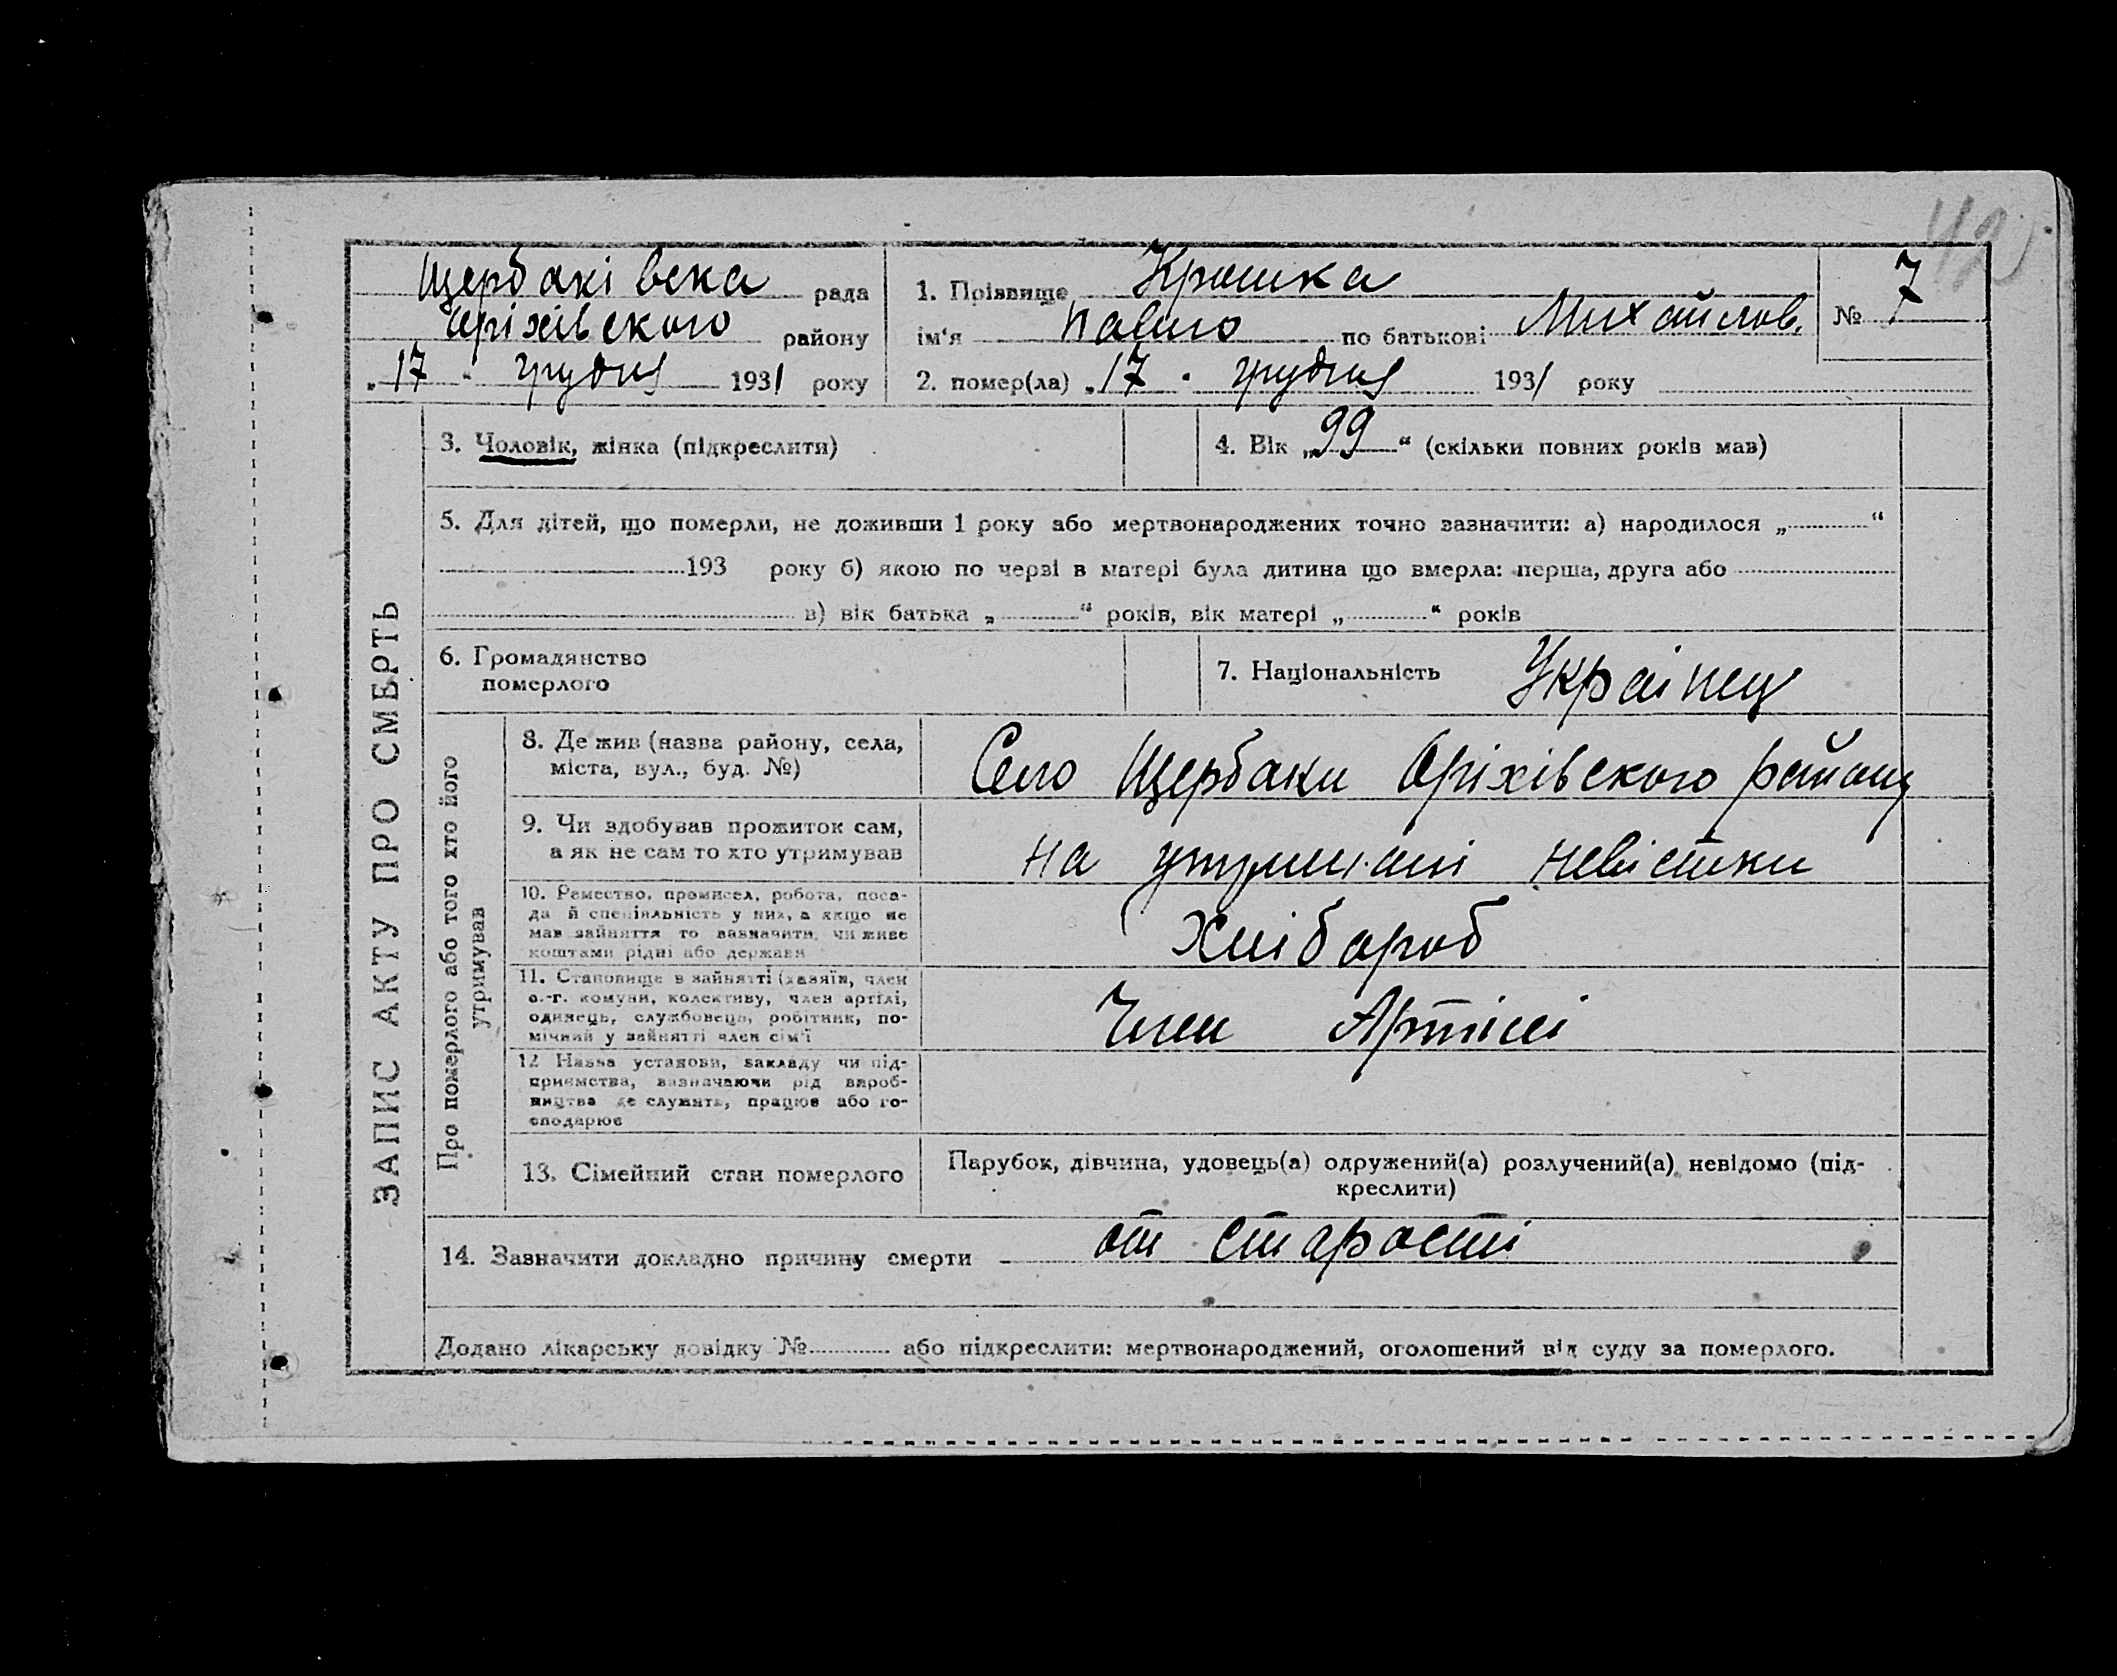 42
Щербаківска рада
Оріхівского району
„17“ грудня 1931 року
1. Прізвище Крошка
ім‘я Павло по батькові Михайлов.
№ 7
2. помер(ла) „17“ грудня 1931 року
ЗАПИС АКТУ ПРО СМЕРТЬ
3. Чоловік, жінка (підкреслити)
4. Вік „99“ (скільки повних років мав)
5. Для дітей, що померли, не доживши 1 року або мертвонароджених точно зазначити: а) народилося „ “
193 року б) якою по черзі в матері була дитина що вмерла: перша, друга або
в) вік батька „ “ років, вік матері „ “ років
6. Громадянство
померлого
7. Національність Украінец
Про померлого або того хто його
утримував
8. Де жив (назва району, села,
міста, вул., буд. №)
Село Щербаки Оріхівского району
9. Чи здобував прожиток сам,
а як не сам то хто утримував
на утримані невістки
10. Ремество, промисел, робота, поса-
да й спеціяльність у них, а якщо не
мав зайняття то зазначити, чи живе
коштами рідні або держави
Хлібароб
11. Становище в зайнятті (хазяїн, член
с.-г. комуни, колективу, член артілі,
одинець, службовець, робітник, по-
мічний у зайнятті член сім‘ї
Член Артілі
12 Назва установи, закладу чи під-
приємства, зазначаючи рід вироб-
ництва де служить, працює або го-
сподарює
13. Сімейний стан померлого
Парубок, дівчина, удовець(а) одружений(а) розлучений(а) невідомо (під-
креслити)
14. Зазначити докладно причину смерти от старості
Додано лікарську довідку № або підкреслити: мертвонароджений, оголошений від суду за померлого.